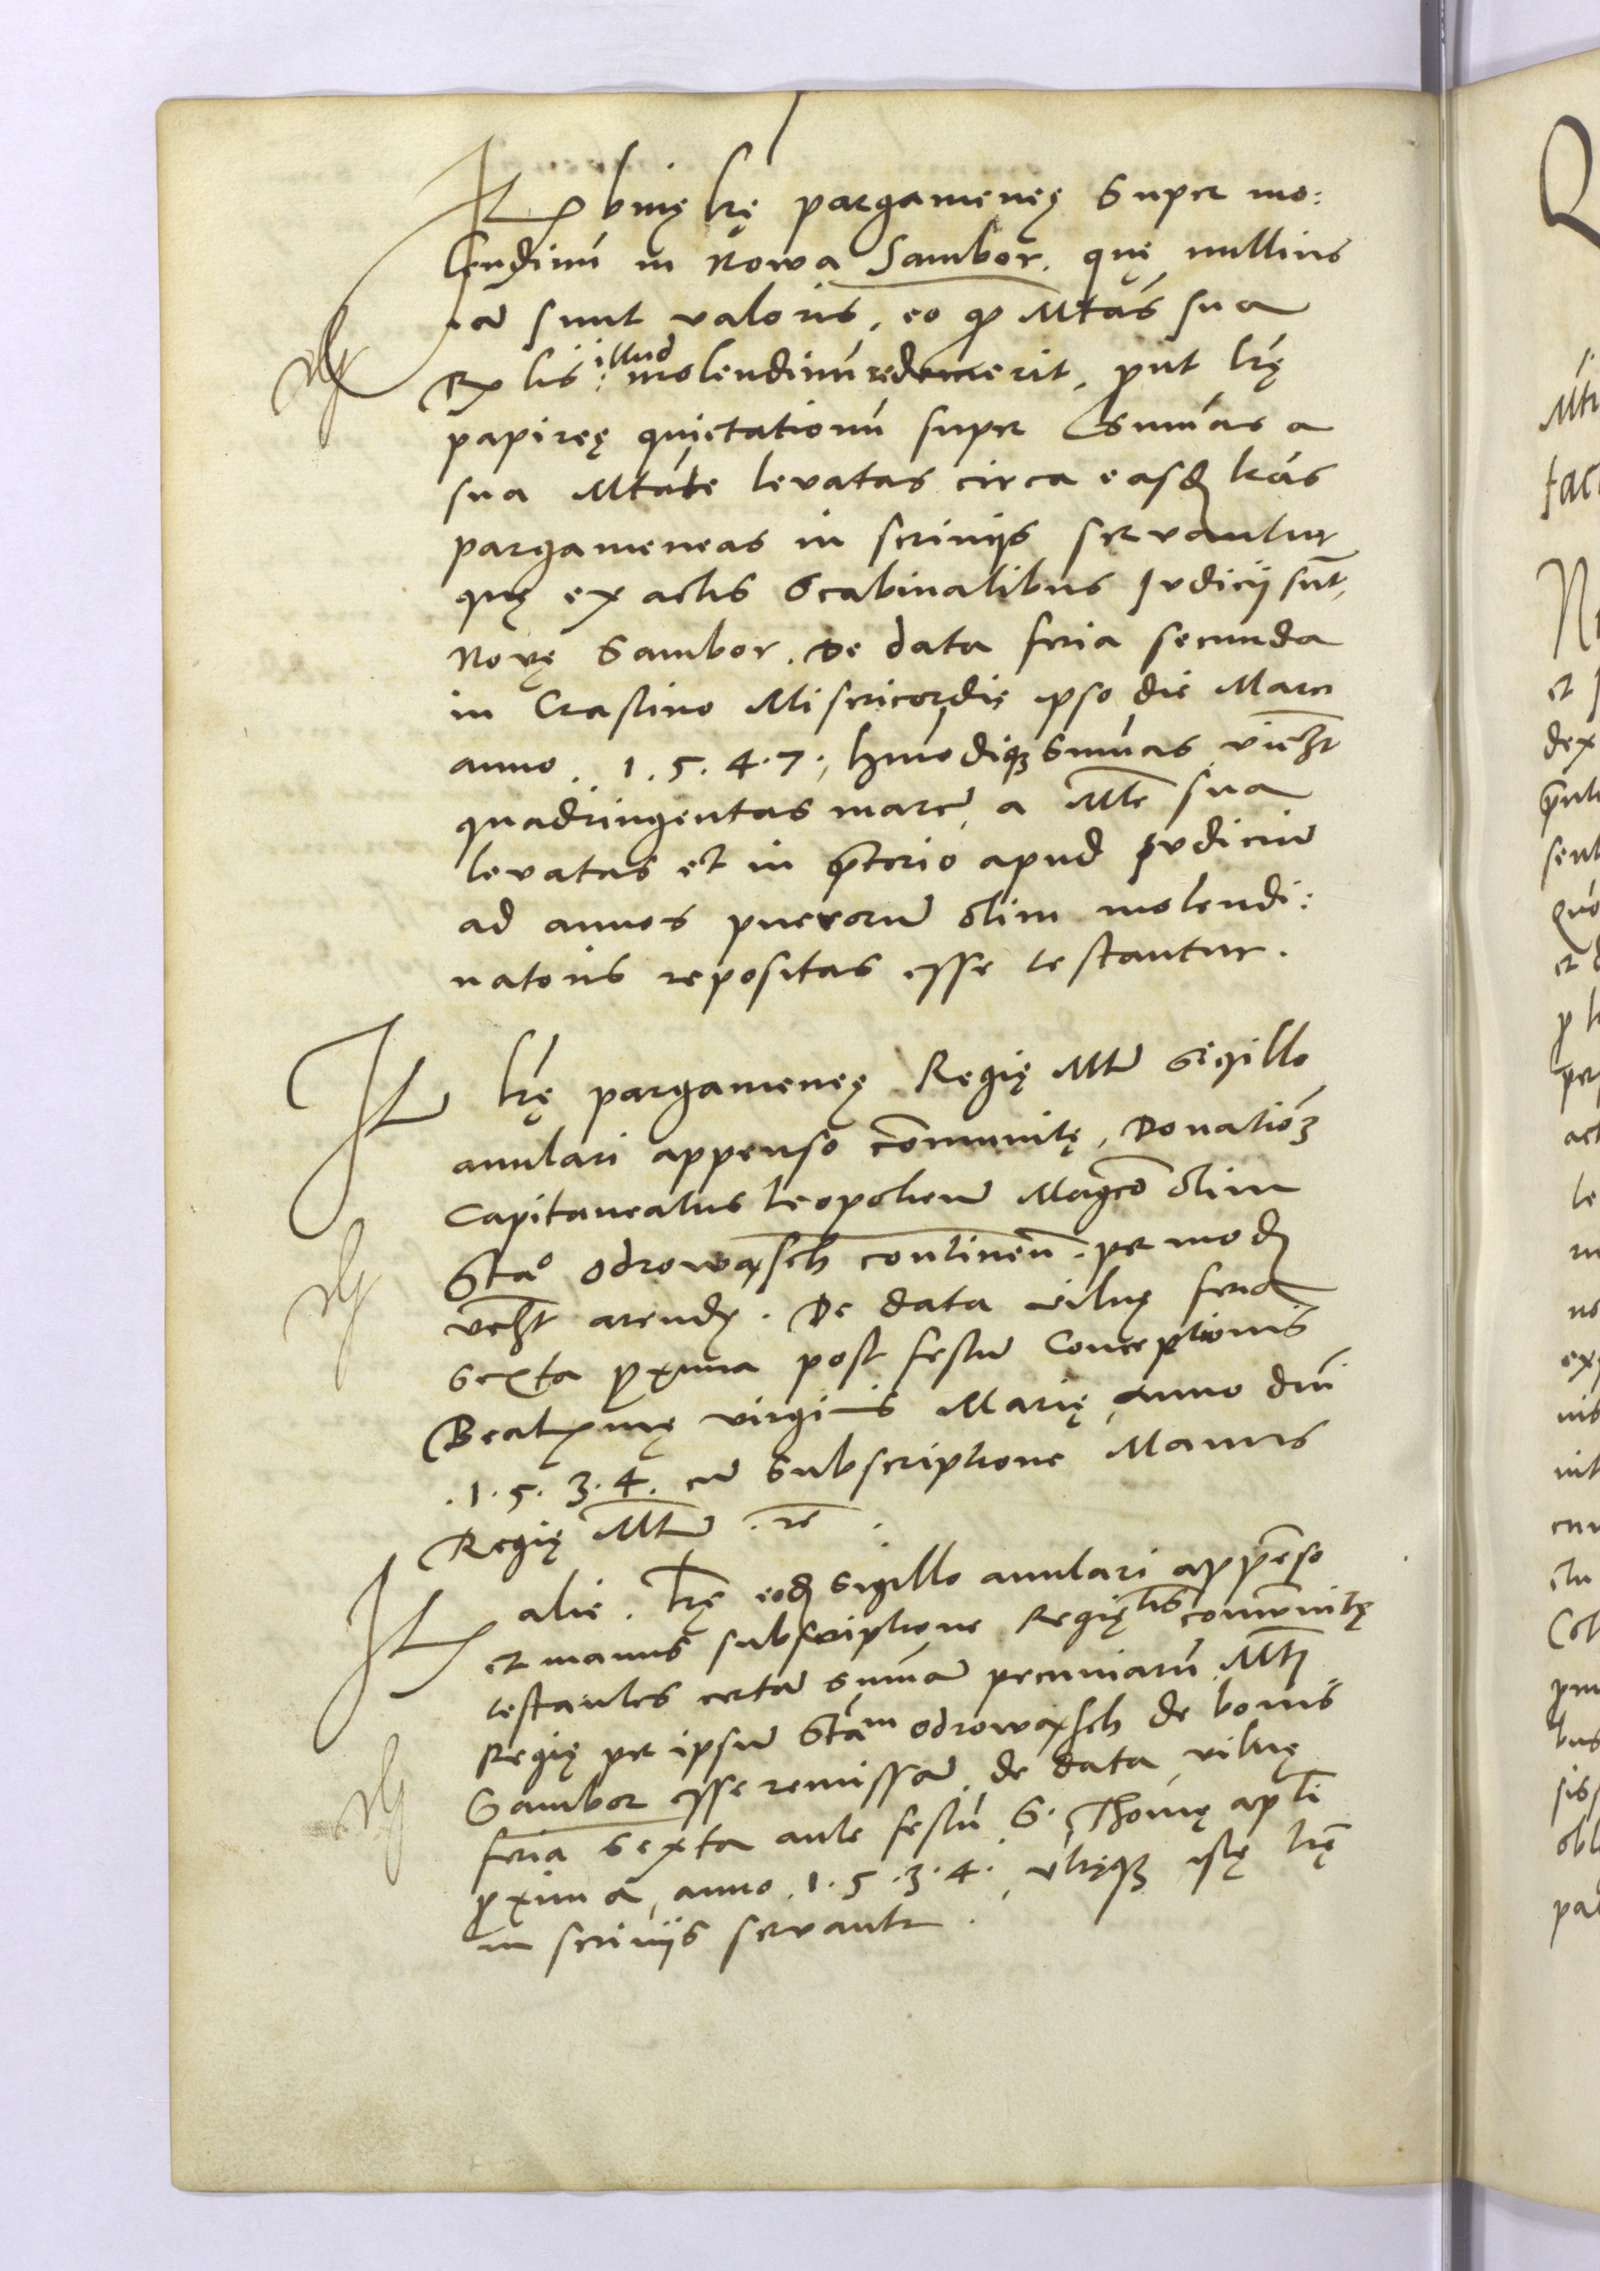 It binę lrę pargameneę super mo:
lendinū in nowa Sambor. quę nullius
iā sunt valoris, eo qp Mtas sua
R lis illud molendinū redemerit, put lrę
papireę quietationū super sūmas a
sua Mtate levatas circa easdē lras
pargameneas in scrinijs servantur
quę ex actis scabinalibus Judicij sūt
Novę Sambor. De data feria secunda
in Crastino Misericordię ipso die Marci
anno . 1 . 5 . 4 . 7 ., hmōdiqz sūmas vicht
quadringentas marcī a Mte sua
levatas et in pterio apud Judiciū
ad annos puerorū olim molendi:
natoris repositas esse testantur.
It lrę pargameneę Regię Mtī sigillo
anulari appenso cōmunitę, Donationē
Capitaneatus leopolien Magco olim
Stao odrowasch continen. per modū
vcht arendę. De data vilnę feria
sexta pxima post festū Conceptionis
Beatmę virginis Marię, anno dni
. 1 . 5 . 3 . 4 . cū subscriptione Manus
Regię Mtī . re .
It alie . lrę eodē sigillo anulari appenso
et manus subscriptione Regię tis cōmunitę
testantes certā sūmā pecuniarū Mti
Regię per ipsū Stam odrowasch de bonis
Sambor esse remissā. de data vilnę
feria sexta ante festū S. Thomę apli
pxima, anno . 1 . 5 . 3 . 4 ., utręqz istę lrę
in scrinijs servantr.